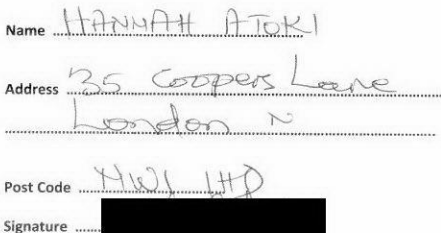 Name HANNAH ATOKI
Address 35 Coopers Lane
London N
Post Code NW1
Signature